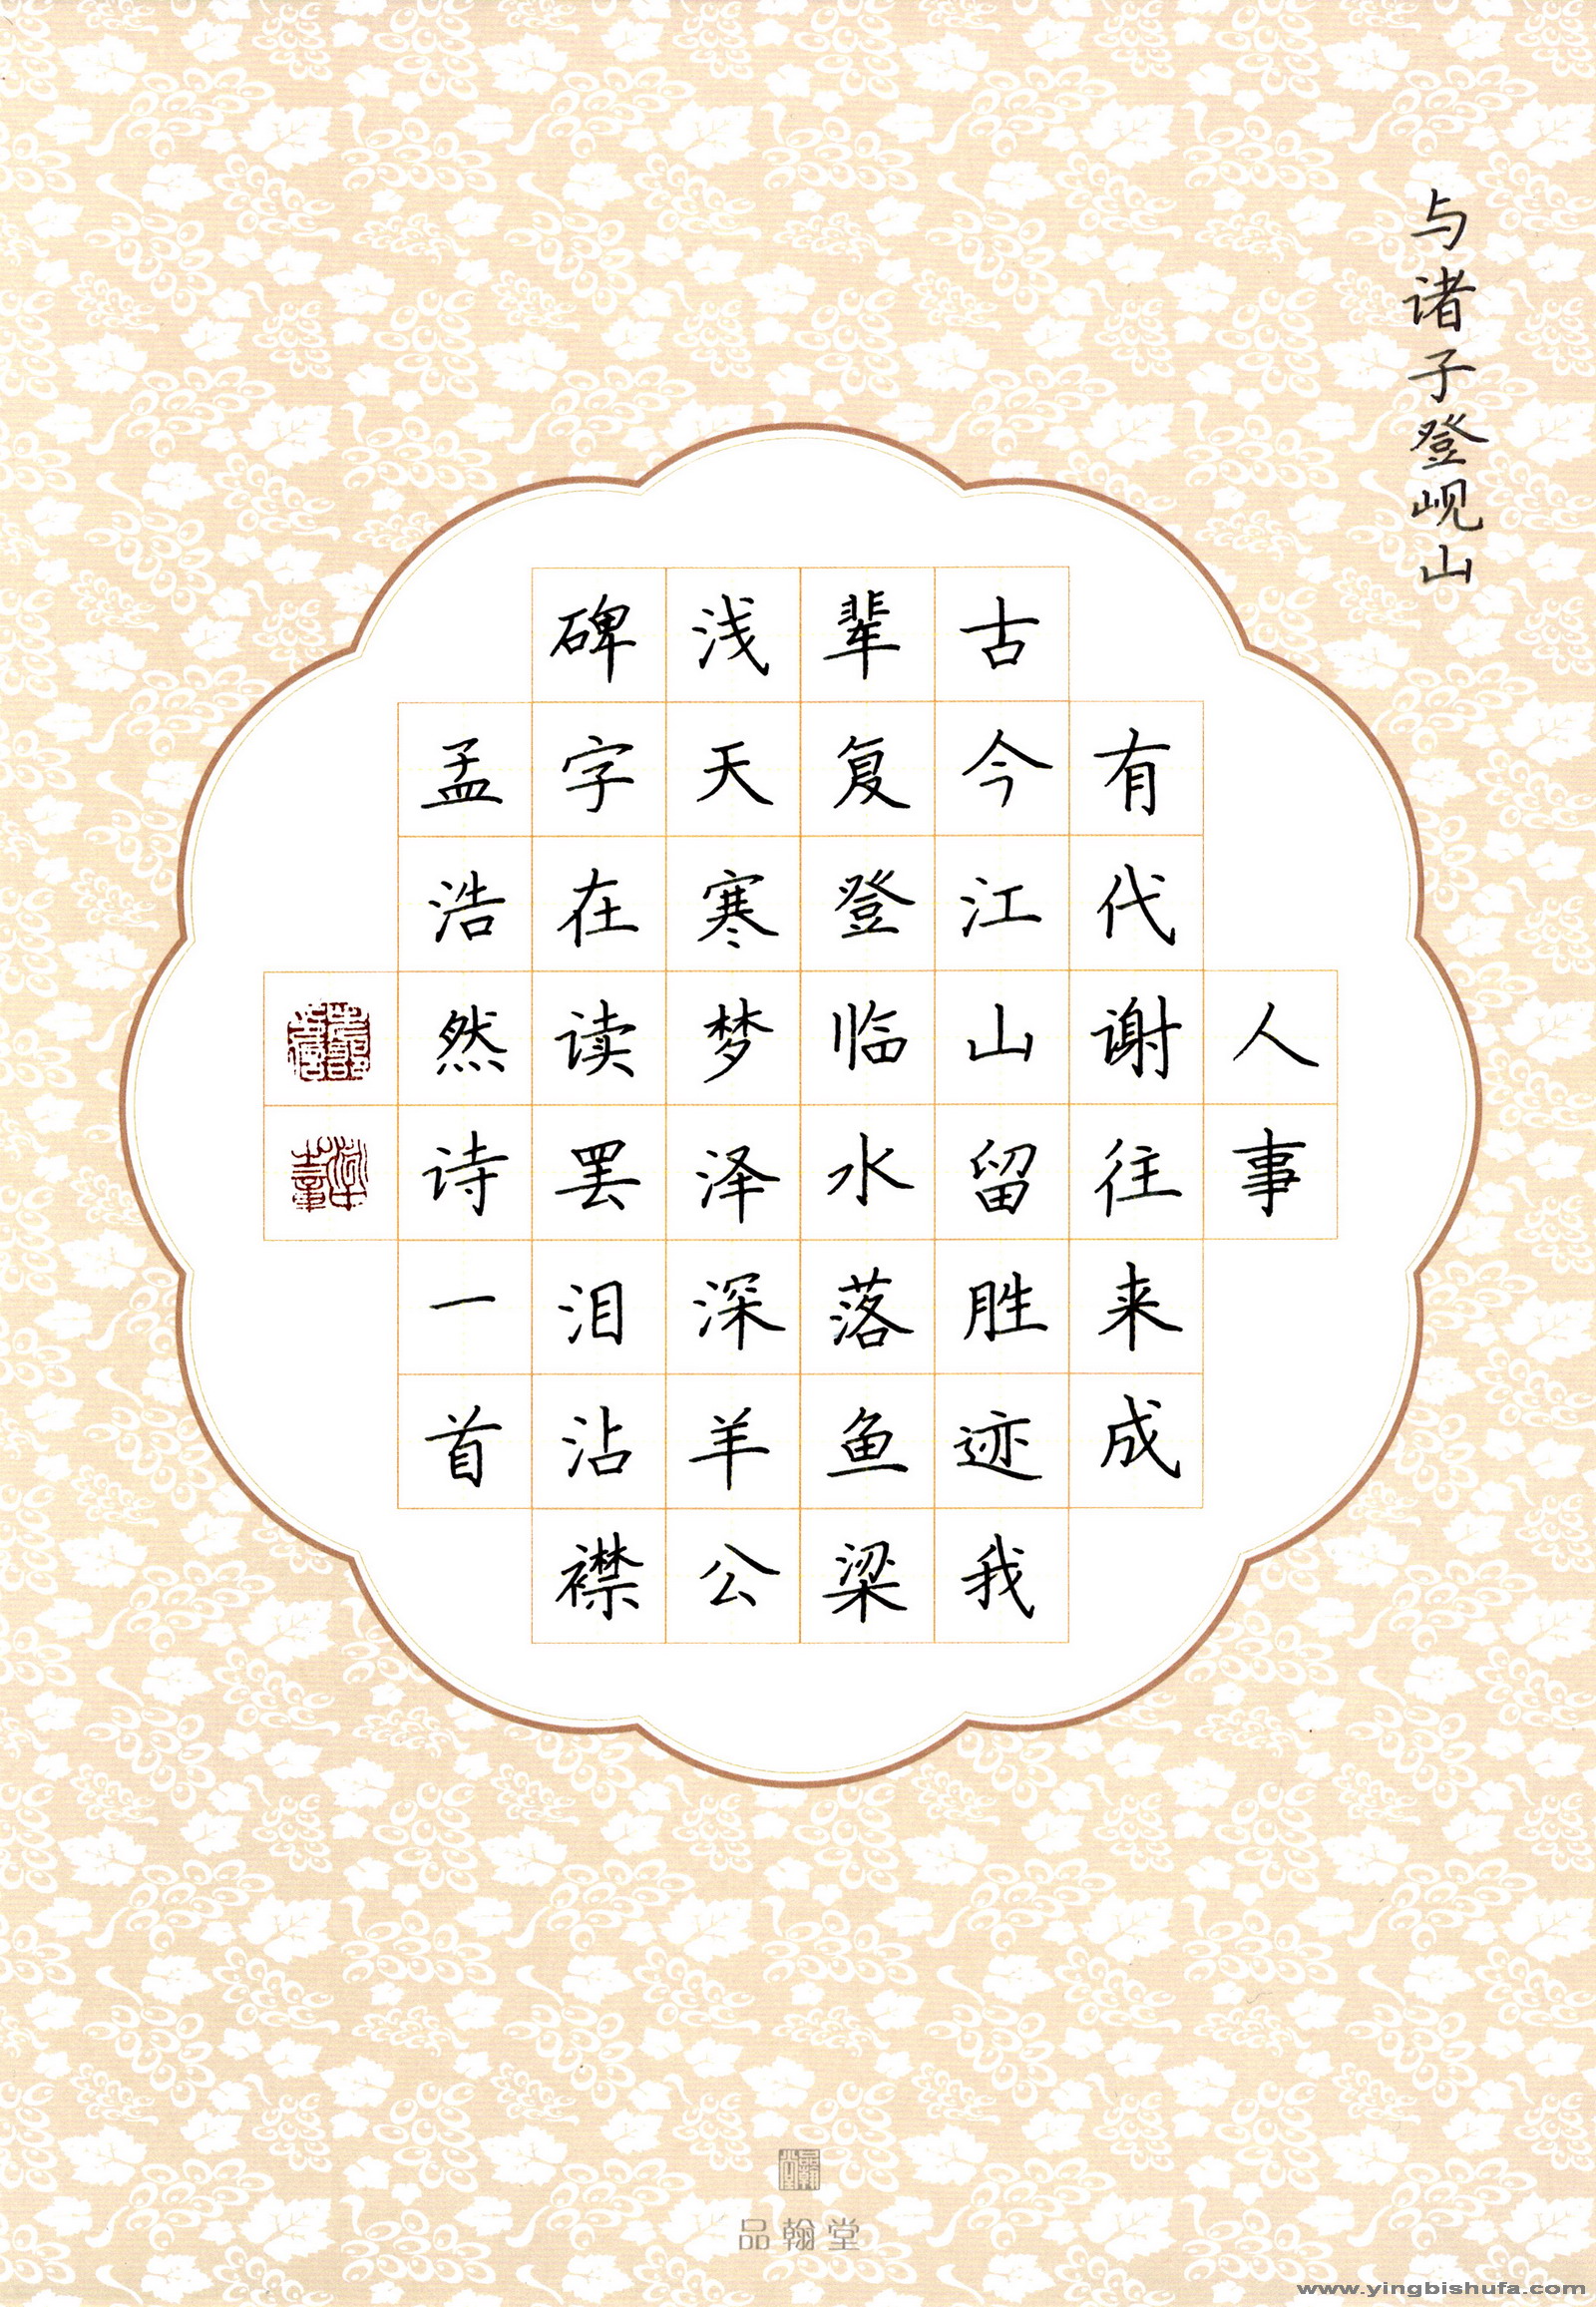 与诸子登岘山
人事
有代谢往来成
古今江山留胜迹我
辈复登临水落鱼梁
浅天寒梦泽深羊公
碑字在读罢泪沾襟
孟浩然诗一首
品翰堂
www.yingbishufa.com